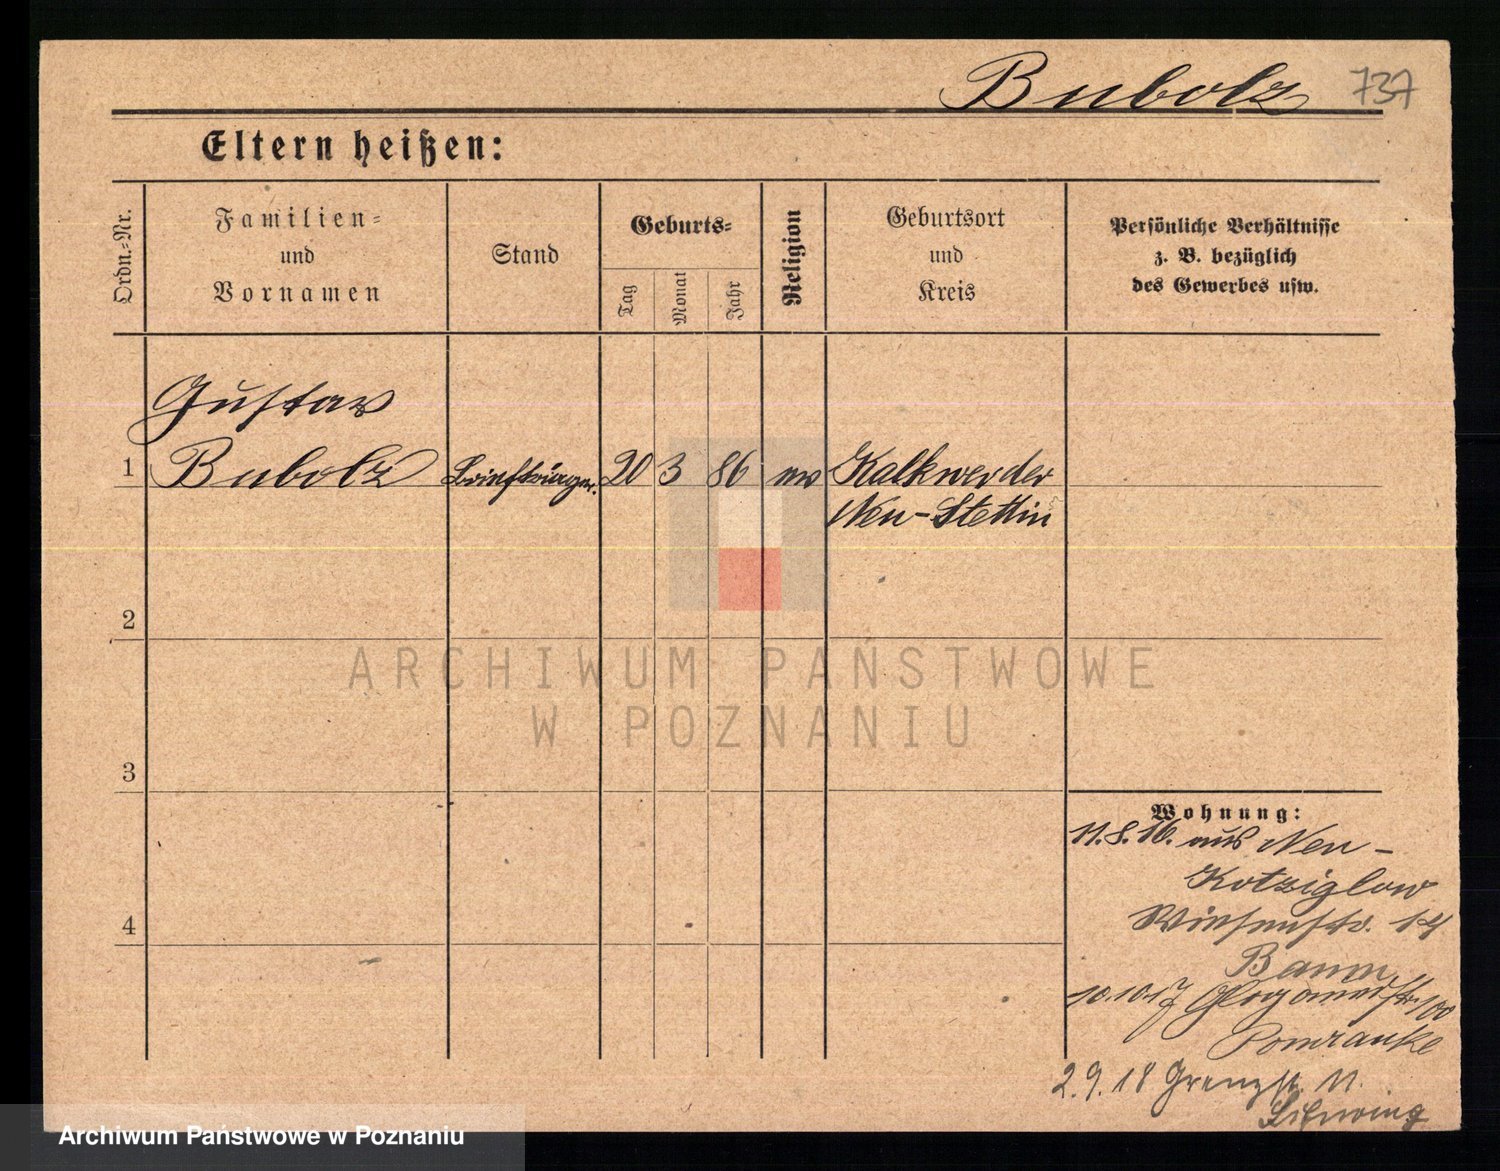 Bubolz 737
Eltern heißen:
Ordn.-Nr.
Familien-
und
Vornamen
Stand
Geburts-
Tag
Monat
Jahr
Religion
Geburtsort
und
Kreis
Persönliche Verhältnisse
z. B. bezüglich
des Gewerbes usw.
Gustav
1 Bubolz Briefträger. 20 3 86 ev Kalkwerder
Neu-Stettin
2
ARCHIWUM PAŃSTWOWE
W POZNANIU
3
Wohnung:
11.8.16. aus Neu-
Kotziglow
Wiesenstr. 14
4
Baum
10.10.17 Glogauerstr. 100
Pomranke
2.9.18 Grenzstr. 11.
Archiwum Państwowe w Poznaniu